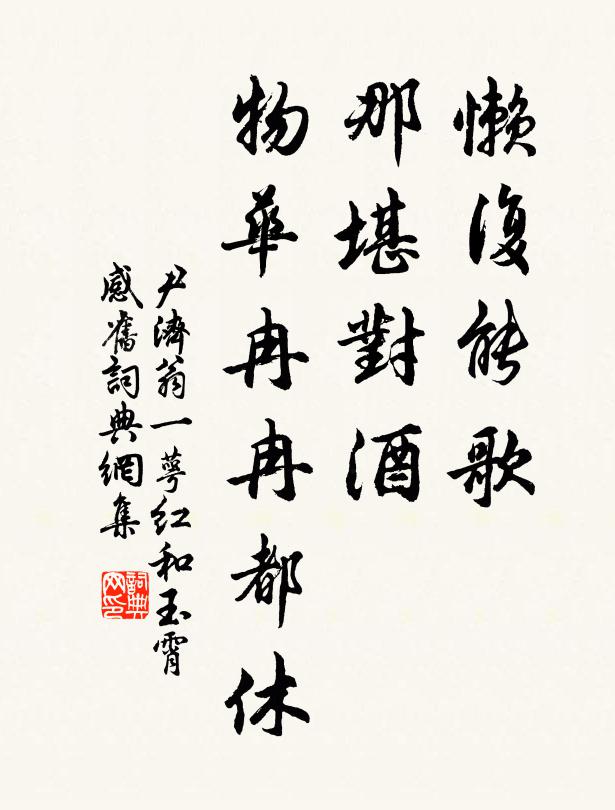 懶復能歌
那堪對酒
物華冉冉都休
尹濟翁一萼紅和玉霄
感舊詞典網集
詞典网印